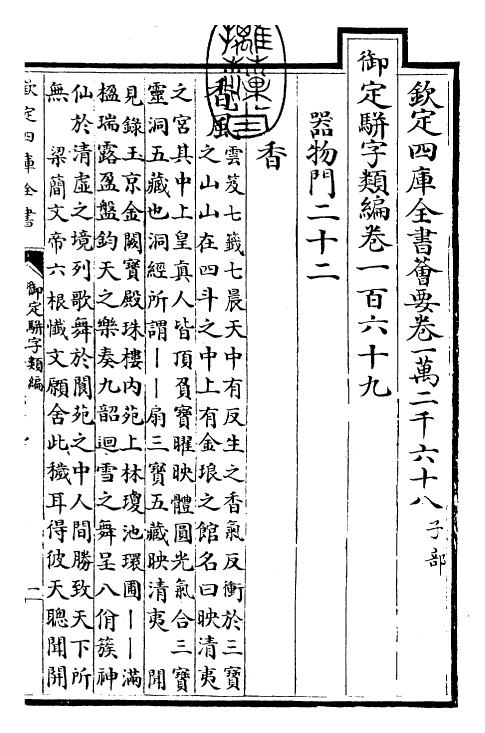 欽定四庫全書薈要卷一萬二千六十八 子部
御定駢字類編卷一百六十九
器物門二十二
香
香風 雲笈七籤七晨天中有反生之香氣反衝於三寶
之山山在四斗之中上有金琅之館名曰映清夷
之宮其中上皇真人皆頂負寶曜映體圓光氣合三寶
靈洞五藏也洞經所謂丨丨扇三寶五藏映清夷 開
見錄玉京金闕寶殿珠樓內苑上林瓊池環圃丨丨滿
楹瑞露盈盤鈞天之樂奏九韶迴雪之舞呈八佾簇神
仙於清虛之境列歌舞於閬苑之中人間勝致天下所
無 梁簡文帝六根懺文願舍此穢耳得彼天聰聞開
欽定四庫全書
御定駢字類編